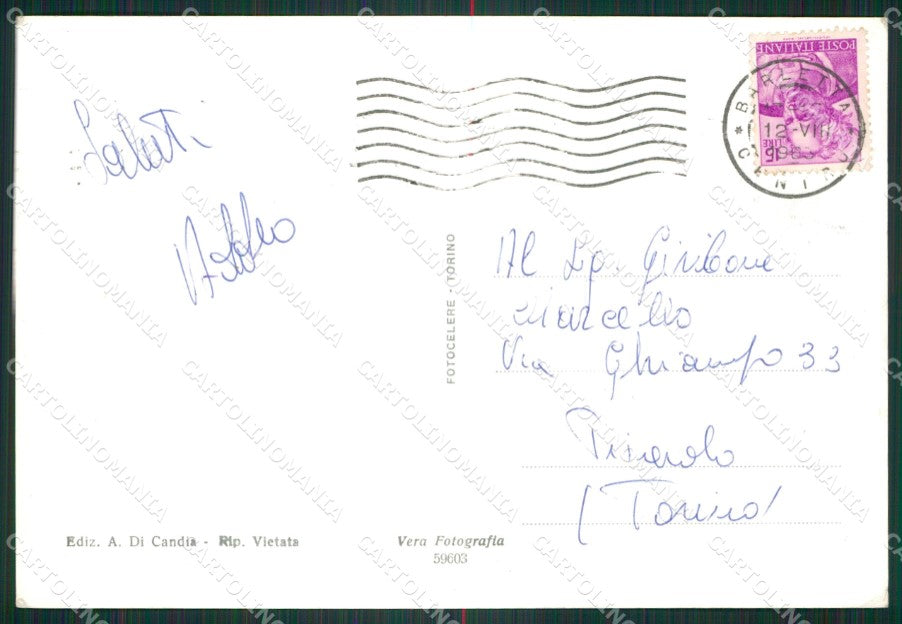 Saluti
POSTE ITALIANE
LIRE 15
BARLETTA
12-VIII
1963
FOTOCELERE - TORINO
Al Sig. Giribone
Marcello
Via Ghiampo 33
(Torino)
Ediz. A. Di Candia - Rip. Vietata
Vera Fotografia
59603
CARTOLINOMANIA